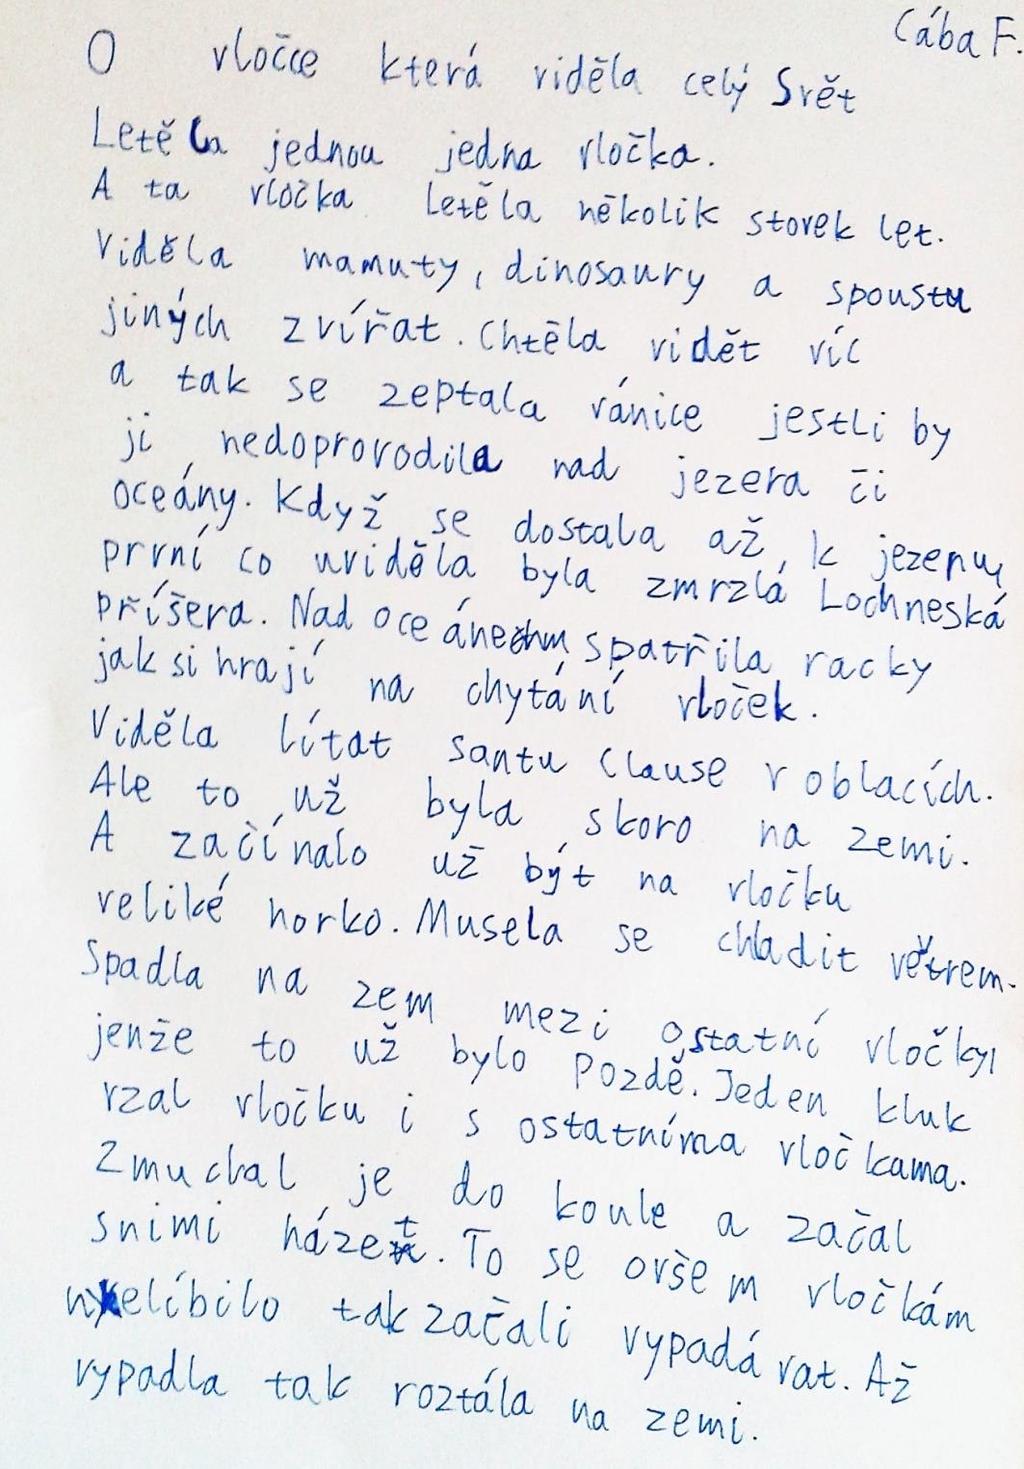 Cába F.
O vločce která viděla celý Svět
Letěla jednou jedna vločka.
A ta vločka letěla několik storek let.
Viděla mamuty, dinosaury a spoustu
jiných zvířat. Chtěla vidět víc
a tak se zeptala vánice jestli by
ji nedoprovodila nad jezera či
oceány. Když se dostala až k jezeru,
první co uviděla byla zmrzlá Lochneská
příšera. Nad oceánem spatřila racky
jak si hrají na chytání vloček.
Viděla lítat santu Clause v oblacích.
Ale to už byla skoro na zemi.
A začínalo už být na vločku
veliké horko. Musela se chladit větrem.
Spadla na zem mezi ostatní vločky,
jenže to už bylo Pozdě. Jeden kluk
vzal vločku i s ostatníma vločkama.
Zmuchal je do koule a začal
snimi házet. To se ovšem vločkám
nelíbilo tak začali vypadávat. Až
vypadla tak roztála na zemi.